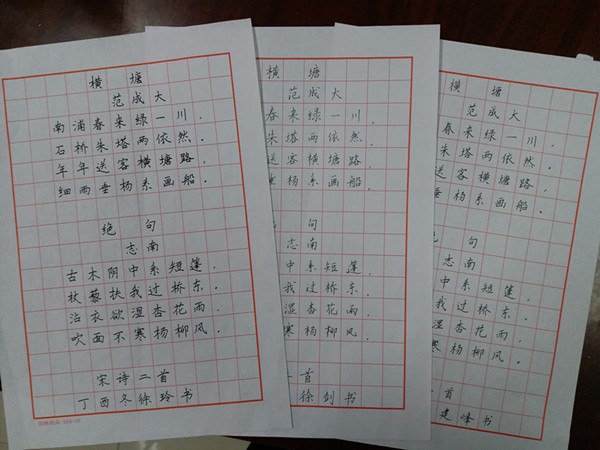 横塘
范成大
南浦春来绿一川，
石桥朱塔两依然。
年年送客横塘路，
细雨垂杨系画船。
绝句
志南
古木阴中系短篷，
杖藜扶我过桥东。
沾衣欲湿杏花雨，
吹面不寒杨柳风。
宋诗二首
丁酉冬徐玲书
横塘
范成大
春来绿一川，
朱塔两依然。
送客横塘路，
垂杨系画船。
句
志南
中系短篷，
我过桥东。
湿杏花雨，
寒杨柳风。
首
徐剑书
横塘
范成大
春来绿一川，
朱塔两依然。
送客横塘路，
垂杨系画船。
句
志南
中系短篷，
我过桥东。
湿杏花雨，
寒杨柳风。
首
建峰书